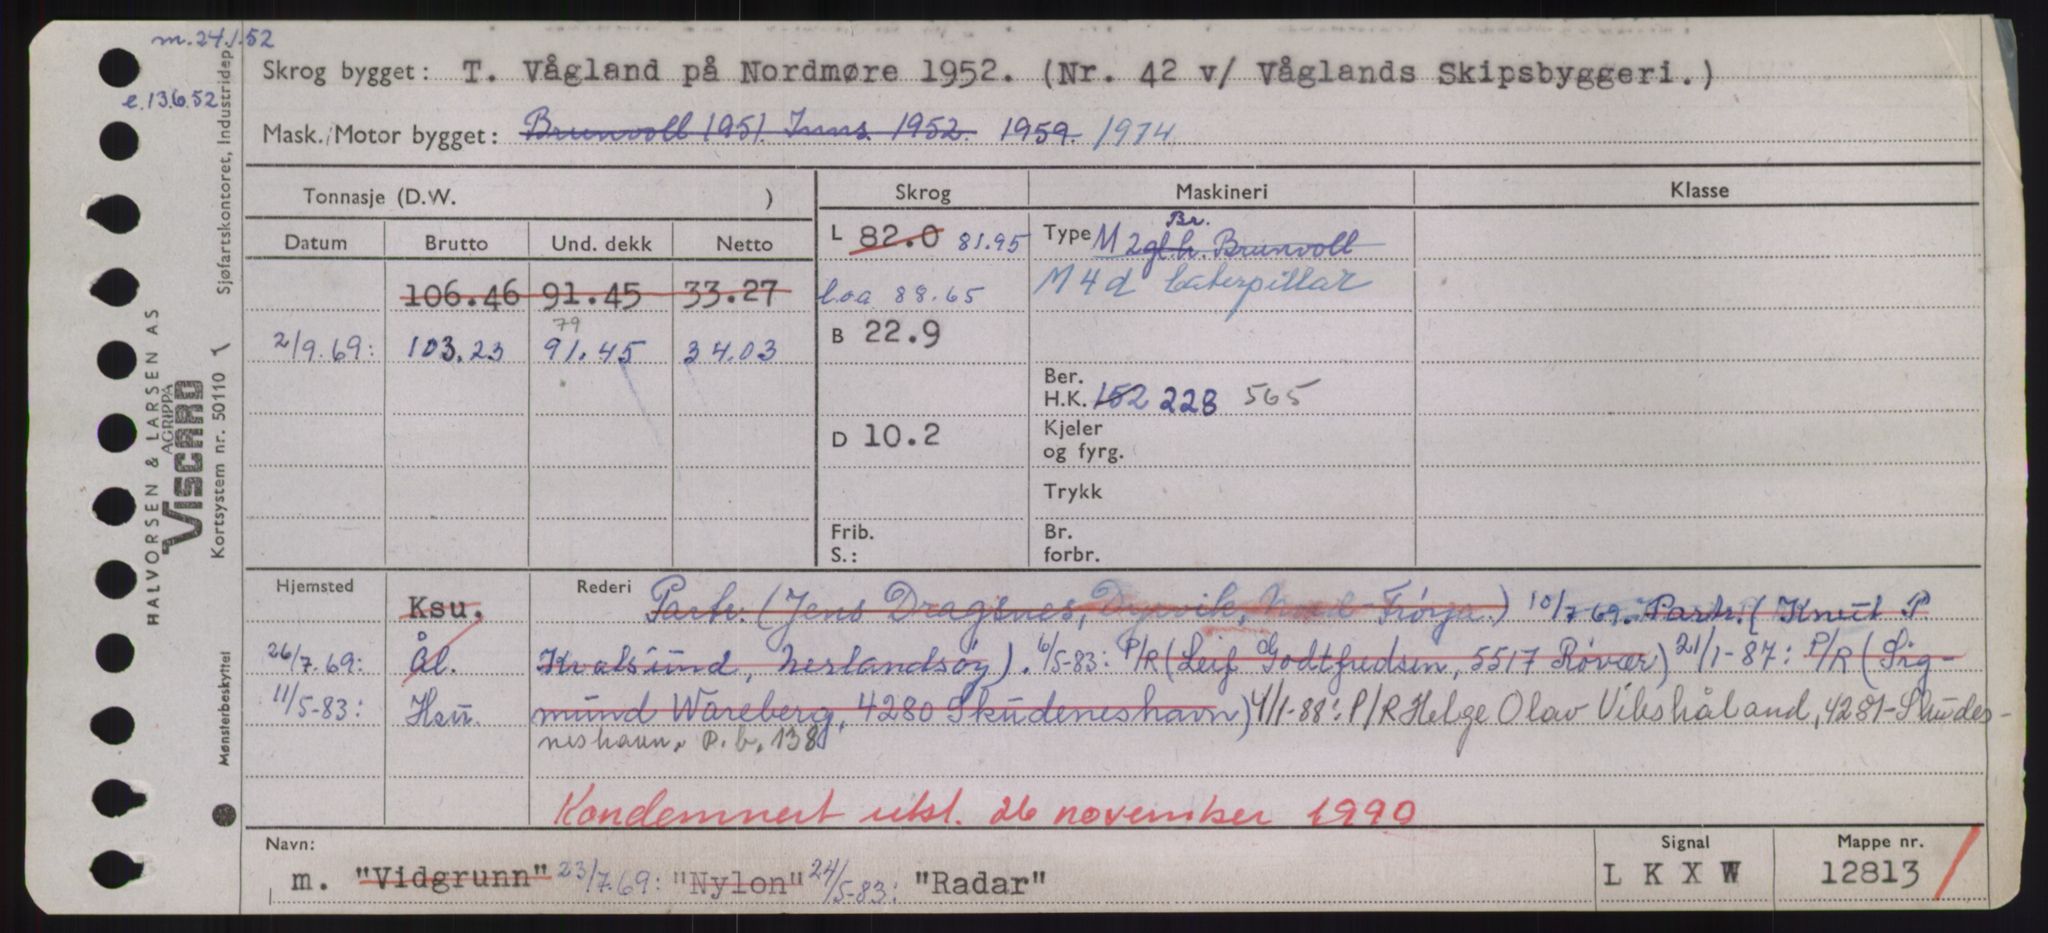 m.24.1.52
Skrog bygget: T. Vågland på Nordmøre 1952. (Nr. 42 v/ Våglands Skipsbyggeri.)
e.13.6.52
Mask./Motor bygget: Brunvoll 1951. 1952. 1959. 1974
Tonnasje (D.W. )
Skrog Maskineri Klasse
Datum Brutto Und. dekk Netto
L 82.0 81.95 Type M 2gl.h. Br. Brunvoll
106.46 91.45 33.27
l.o.a 88.65 M 4 d Caterpillar
79
2/9.69: 103.23 91.45 34.03
B 22.9
Ber.
H.K. 152 228 565
D 10.2
Kjeler
og fyrg.
Trykk
Frib.
S.:
Br.
forbr.
Hjemsted Rederi
Ksu. Partr. (Jens Dragsnes, Dyrvik, Frøya.) 10/7 69. Partr. (Knut P
26/7.69: Ål. Kvalsund, Nerlandsøy). 6/5-83: P/R (Leif G. Godtfredsen, 5517 Røvær) 21/1-87: P/R (Sig-
11/5-83: Hsu. mund Wareberg, 4280 Skudeneshavn) 4/1-88: P/R Helge Olav Vikshåland, 4281-Skudes-
neshavn. P.b. 138
Kondemnert utst. 26 november 1990
Navn: Signal Mappe nr.
m. "Vidgrunn" 23/7.69: "Nylon" 24/5-83: "Radar" L K X W 12813
HALVORSEN & LARSEN AS
AGRIPPA
VISCARD
Kortsystem nr. 50110
Sjøfartskontoret, Industridep.
Mønsterbeskyttet